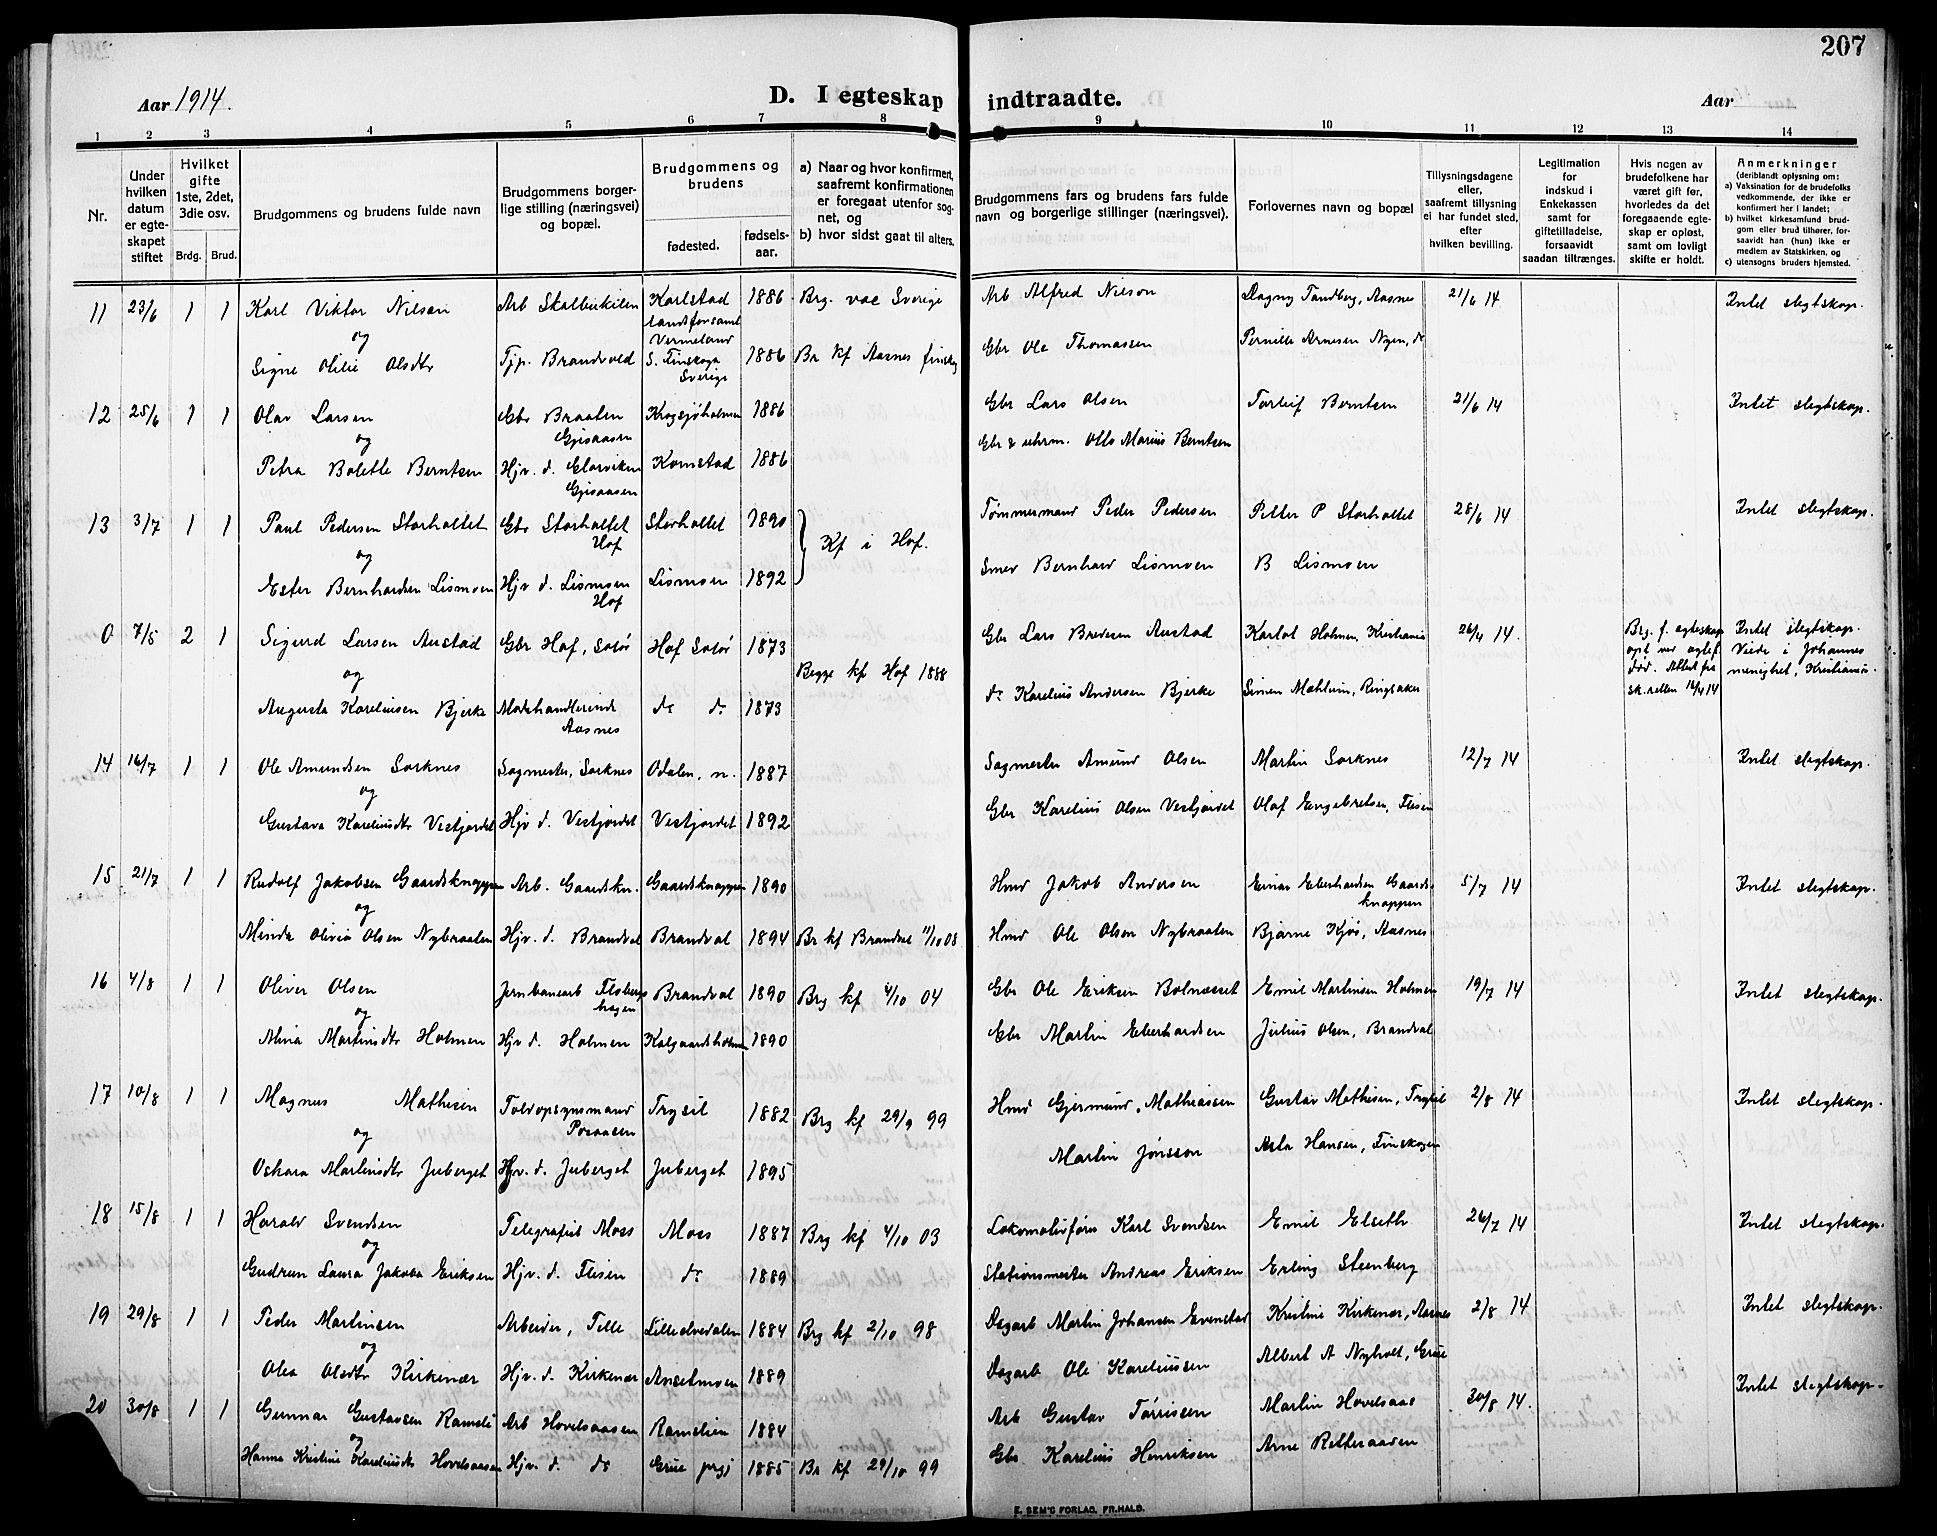 207
Aar 1914.
D. I egteskap indtraadte.
Aar
1 2 3 4 5 6 7 8 9 10 11 12 13 14
Nr.
Under hvilken datum er egteskapet stiftet
Hvilket gifte 1ste, 2det, 3die osv.
Brdg. Brud.
Brudgommens og brudens fulde navn
Brudgommens borgerlige stilling (næringsvei) og bopæl.
Brudgommens og brudens
fødested.
fødselsaar.
a) Naar og hvor konfirmert, saafremt konfirmationen er foregaat utenfor sognet, og
b) hvor sidst gaat til alters.
Brudgommens fars og brudens fars fulde navn og borgerlige stillinger (næringsvei).
Forlovernes navn og bopæl
Tillysningsdagene eller, saafremt tillysning ei har fundet sted, efter hvilken bevilling.
Legitimation for indskud i Enkekassen samt for giftetilladelse, forsaavidt saadan tiltrænges.
Hvis nogen av brudefolkene har været gift før, hvorledes da det foregaaende egteskap er opløst, samt om lovligt skifte er holdt.
Anmerkninger
(deriblandt oplysning om:
a) Vaksination for de brudefolks vedkommende, der ikke er konfirmert her i landet;
b) hvilket kirkesamfund brudgom eller brud tilhører, forsaavidt han (hun) ikke er medlem av Statskirken, og
c) utensogns bruders hjemsted.
11 23/6 1 1 Karl Viktor Nilsen Arb Skalbukilen Karlstad landsforsaml Vermeland 1886 Brg. vac Sverige Arb Alfred Nilson Dagny Tandberg, Aasnes 21/6 14 Intet slegtskap.
og
Signe Olilie Olsdtr Tjp. Brandvold S. Finskoga Sverige 1886 Br kf Aasnes finskog Gbr Ole Thomassen Pernille Arnesen Nyen, do
12 25/6 1 1 Olav Larsen Gbr Braaten Gjesaasen Krogsjøholmen 1886 Gbr Lars Olsen Torleif Berntsen 21/6 14 Intet slegtskap.
og
Petra Bolette Berntsen Hjv. d. Glorviken Gjesaasen Komstad 1886 Gbr & uhrm. Otto Marius Berntsen
13 3/7 1 1 Paul Pedersen Storholtet Gbr Storholtet Hof Storholtet 1890 Kf i Hof. Tømmermand Peder Pedersen Petter P Storholtet 28/6 14 Intet slegtskap.
og
Ester Bernhardsen Lismoen Hjv d. Lismoen Hof Lismoen 1892 Smed Bernhard Lismoen B Lismoen
0 7/5 2 1 Sigurd Larsen Austad Gbr Hof, Solør Hof Solør 1873 Begge kf Hof 1888 Gbr Lars Bredesen Austad Karlot Holmen, Kristiania 26/4 14. Brg. f. egteskap opl ved egtef død. Attest fra sk.retten 16/4 14 Intet slegtskap. Viede i Johannes menighet, Kristiania.
og
Augusta Kareliusen Bjerke Modehandlerinde Aasnes do do 1873 do Karelius Andersen Bjerke Simen Mæhlum, Ringsaker
14 16/7 1 1 Ole Amundsen Sorknes Sagmester, Sorknes Odalen, n. 1887 Sagmester Amund Olsen Martin Sorknes 12/7 14 Intet slegtskap.
og
Gustava Kareliusdtr Vestjordet Hjv d. Vestjordet Vestjordet 1892 Gbr Karelius Olsen Vestjordet Olaf Engebretsen, Flisen
15 21/7 1 1 Rudolf Jakobsen Gaardsknappen Arb. Gaardskn. Gaardsknappen 1890 Hmd Jakob Andersen Einar Eberhardsen Gaardsknappen 5/7 14 Intet slegtskap.
og
Minda Olivia Olsen Nybraaten Hjv. d. Brandval Brandval 1894 Br kf Brandval 11/10 08 Hmd Ole Olsen Nybraaten Bjarne Kjøs, Aasnes
16 4/8 1 1 Oliver Olsen Jernbanearb Flisberghagen Brandval 1890 Brg kf 4/10 04 Gbr Ole Eriksen Bolnæsset Emil Martinsen Holmen 19/7 14 Intet slegtskap.
og
Alma Martinsdtr Holmen Hjv d. Holmen Kalgaardsholmen 1890 Gbr Martin Eberhardsen Julius Olsen, Brandval
17 10/8 1 1 Magnus Mathisen Toldopsynsmand Posaasen Trysil 1882 Brg kf 29/9 99 Hmd Gjermund Mathiassen Gustav Mathisen, Trysil 2/8 14 Intet slegtskap.
og
Oskara Martinsdtr Juberget Hjv. d. Juberget Juberget 1895 Martin Jønsson Arta Hansen, Finskogen
18 15/8 1 1 Harald Svendsen Telegrafist Moss Moss 1887 Brg kf 4/10 03 Lokomotivfører Karl Svendsen Emil Elseth 26/7 14 Intet slegtskap.
og
Gudrun Laura Jakoba Eriksen Hjv. d. Flisen do 1889 Stationsmester Andreas Eriksen Erling Steenberg
19 29/8 1 1 Peder Martinsen Arbeider, Telle Lilleelvedalen 1884 Brg kf 2/10 98 Dagarb Martin Johansen Evenstad Kristine Kirkenær, Aasnes 2/8 14 Intet slegtskap.
og
Olea Olsdtr Kirkenær Hjv. d. Kirkenær Anselmoen 1889 Dagarb Ole Kareliussen Albert A Nyholt, Grue
20 30/8 1 1 Gunnar Gustavsen Ramsli Arb Hovelsaasen Ramslien 1884 Arb Gustav Tørrissen Martin Hovelsaas 30/8 14. Intet slegtskap.
og
Hanna Kristine Kareliusdtr Hovelsaasen Hjv. d. do Grue prgj 1885 Br kf 29/10 99 Gbr Karelius Henriksen Arne Retteraasen
E. SEM'S FORLAG, FR.HALD.